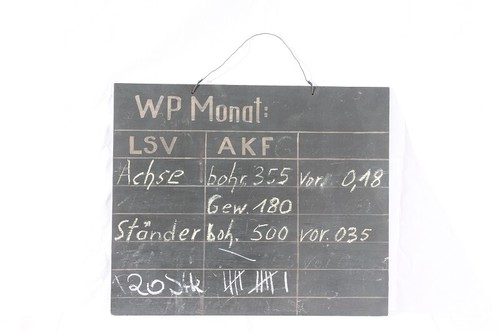 WP Monat:
LSV AKF
Achse bohr. 355 vor. 0,18
Gew. 180
Ständer boh. 500 vor. 035
20 Stk